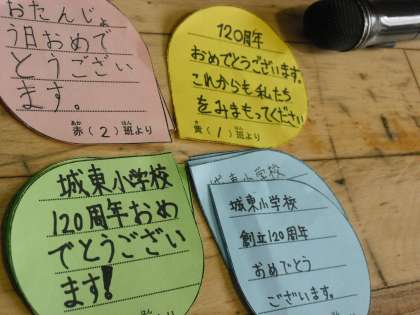 おたんじょ
う日おめで
とうござい
ます。
赤(2)班より
120周年
おめでとうございます。
これからも私たち
をみまもってください
黄(1)班より
城東小学校
120周年おめ
でとうござい
ます!
城東小学校
城東小学校
創立120周年
おめでとう
ございます。